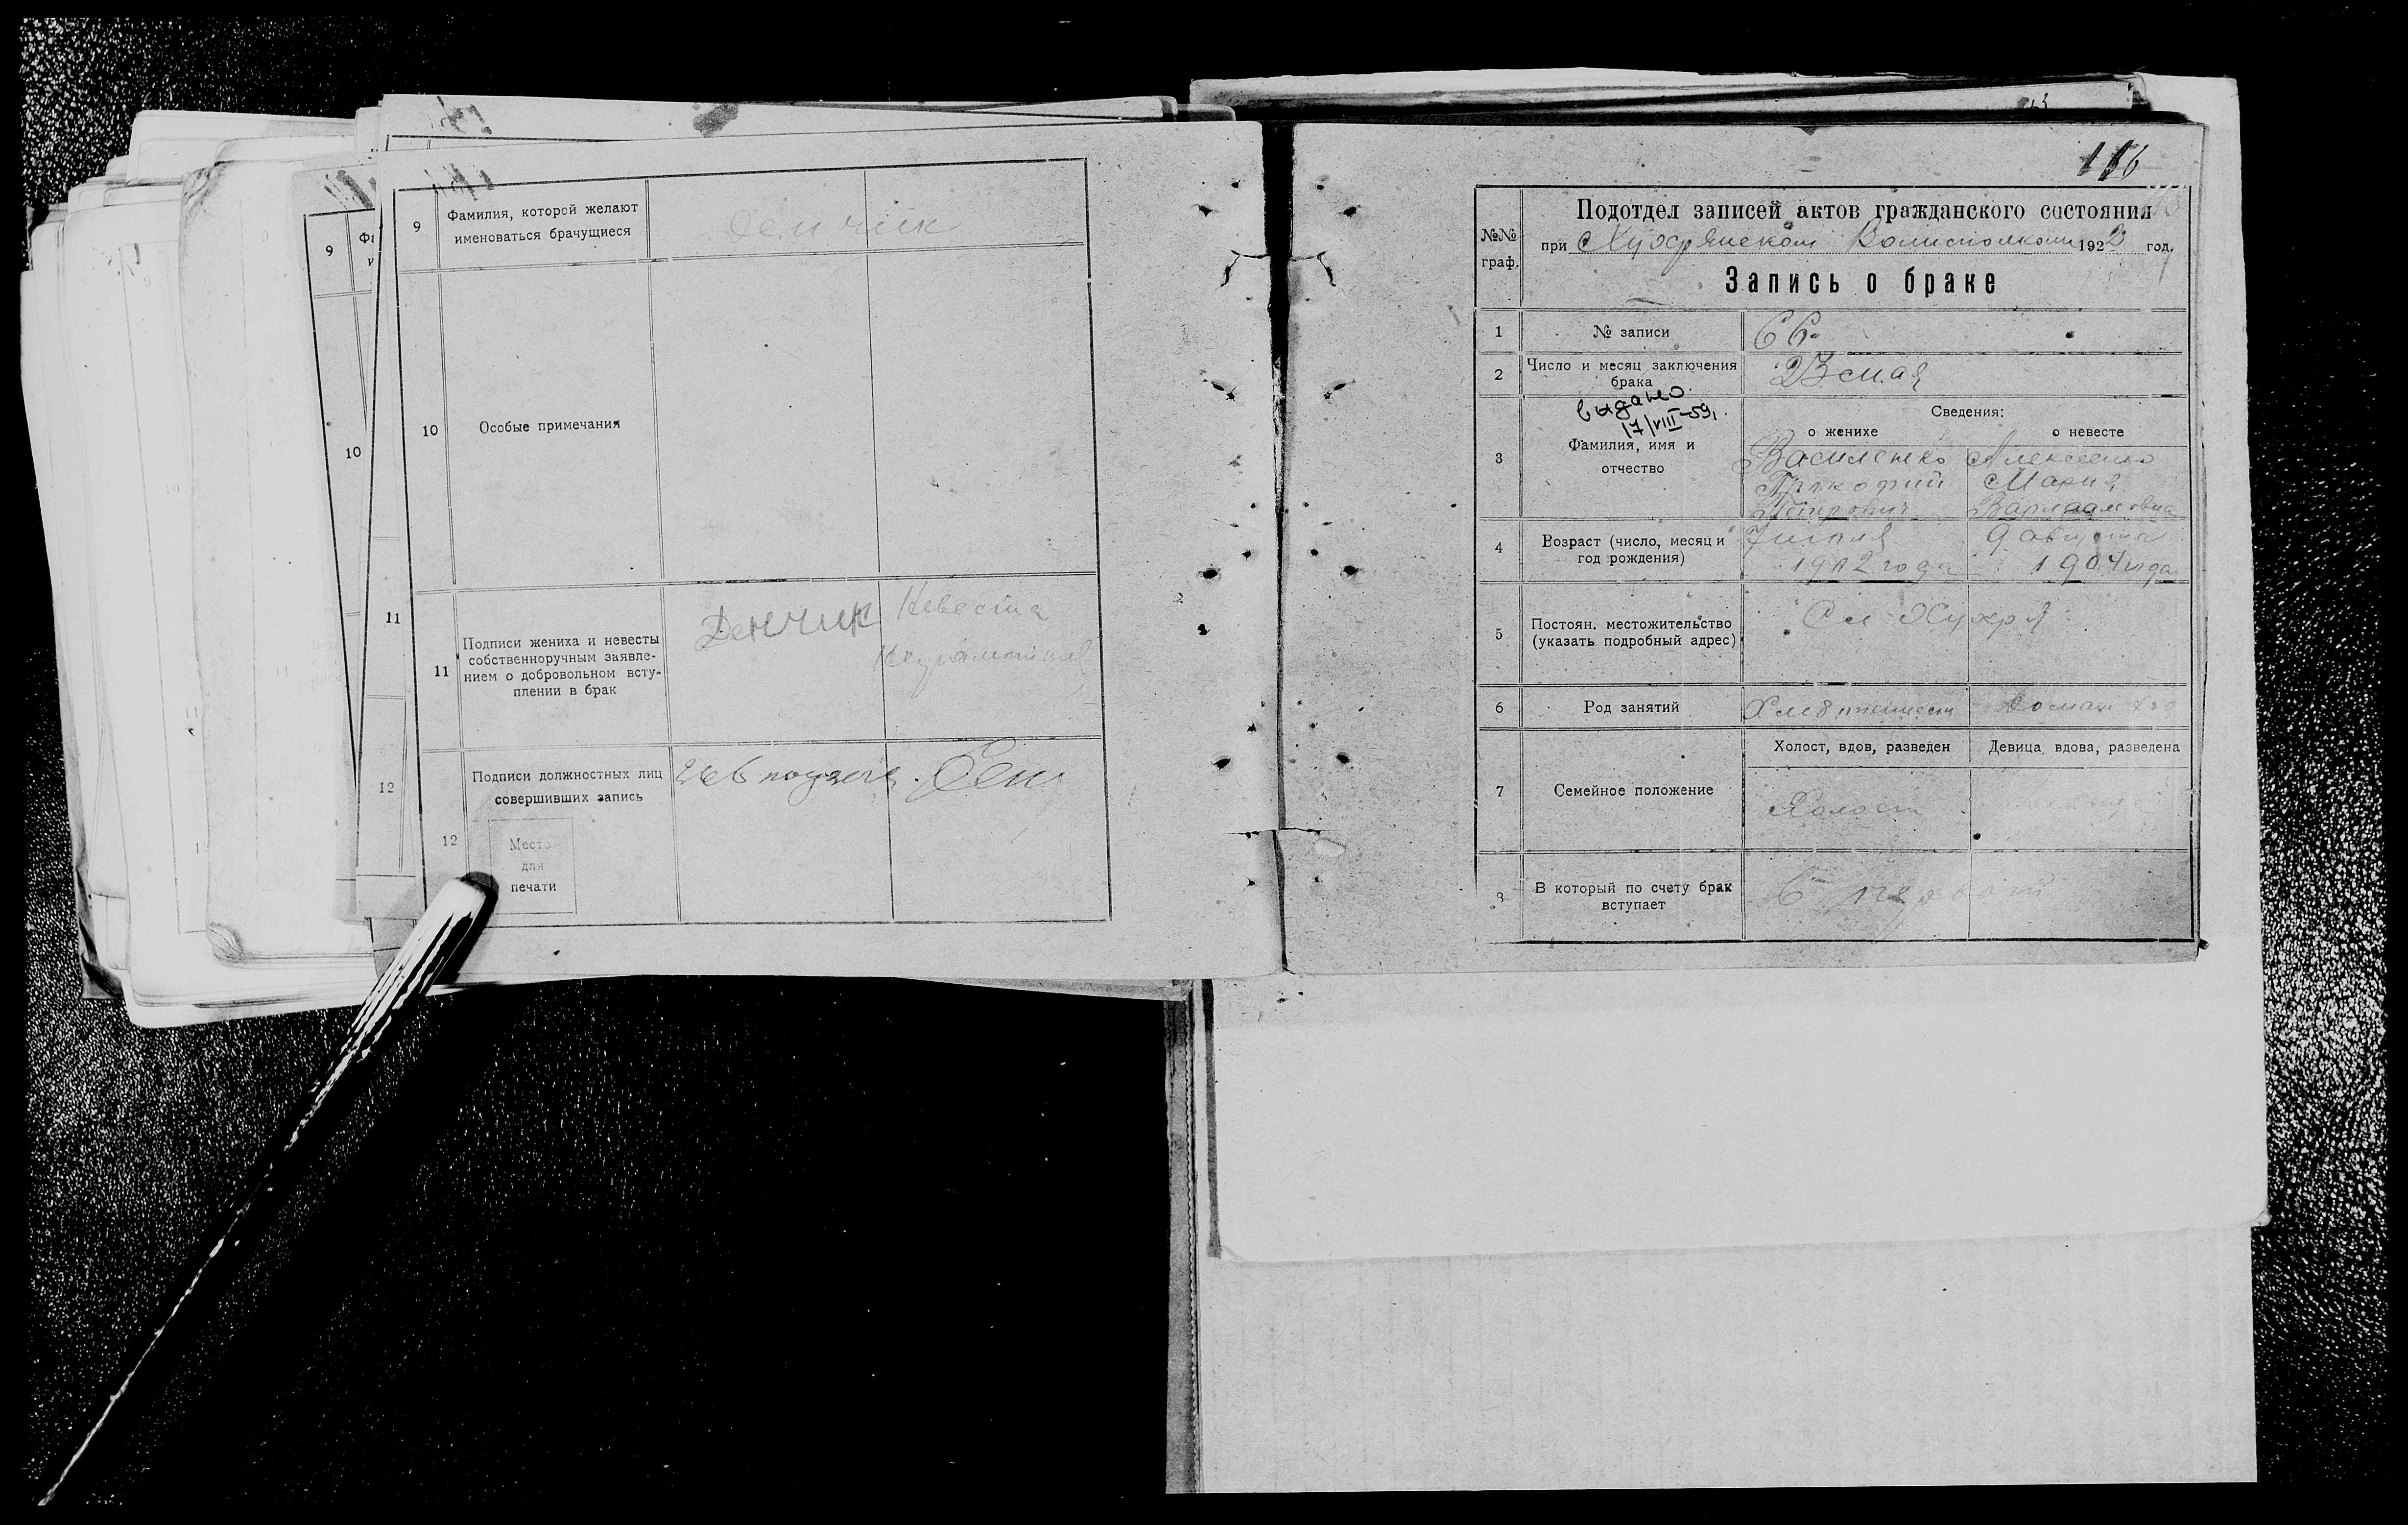 9
Фамилия, которой желают
именоваться брачущиеся
Демчик
10
Особые примечания
11
Подписи жениха и невесты
собственноручным заявле-
нием о добровольном всту-
плении в брак
Демчик
Невеста
неграмотная
12
Подписи должностных лиц
совершивших запись
Зав подзаг
Место
для
печати
9
10
11
12
116
№№
граф.
Подотдел записей актов гражданского состояния
при Хухрянском Волисполкоме 1922 год.
Запись о браке
1
№ записи
66
2
Число и месяц заключения
брака
23 мая
видано
17/VIII-59г.
3
Фамилия, имя и
отчество
Сведения:
о женихе
о невесте
Василенко
Прокофий
Петрович
Алексеенко
Мария
Варлаамовна
4
Возраст (число, месяц и
год рождения)
1902 года
9 августа
1904 года
5
Постоян. местожительство
(указать подробный адрес)
Сл Хухря
6
Род занятий
Хлебопашест
Домаш хоз
7
Семейное положение
Холост, вдов, разведен
Девица, вдова, разведена
Холост
8
В который по счету брак
вступает
В первый